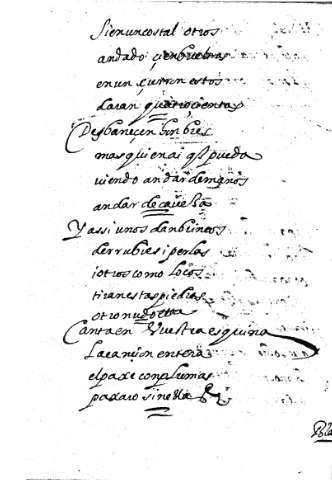 Si en un costal otros
an dado cien bueltas
en un çurron estos
daran quatrocientas
Desbaneçen hinbres
mas quien ai q̃ pueda
viendo andar de manos
andar de caveça
Y assi unos dan brincos
de rrubies i perlas
i otros como locos
tiran estas piedras
otro nudo etta
Canta en vuestra esquina
la cançion entera
el paxe con plumas
paxaro sin ella